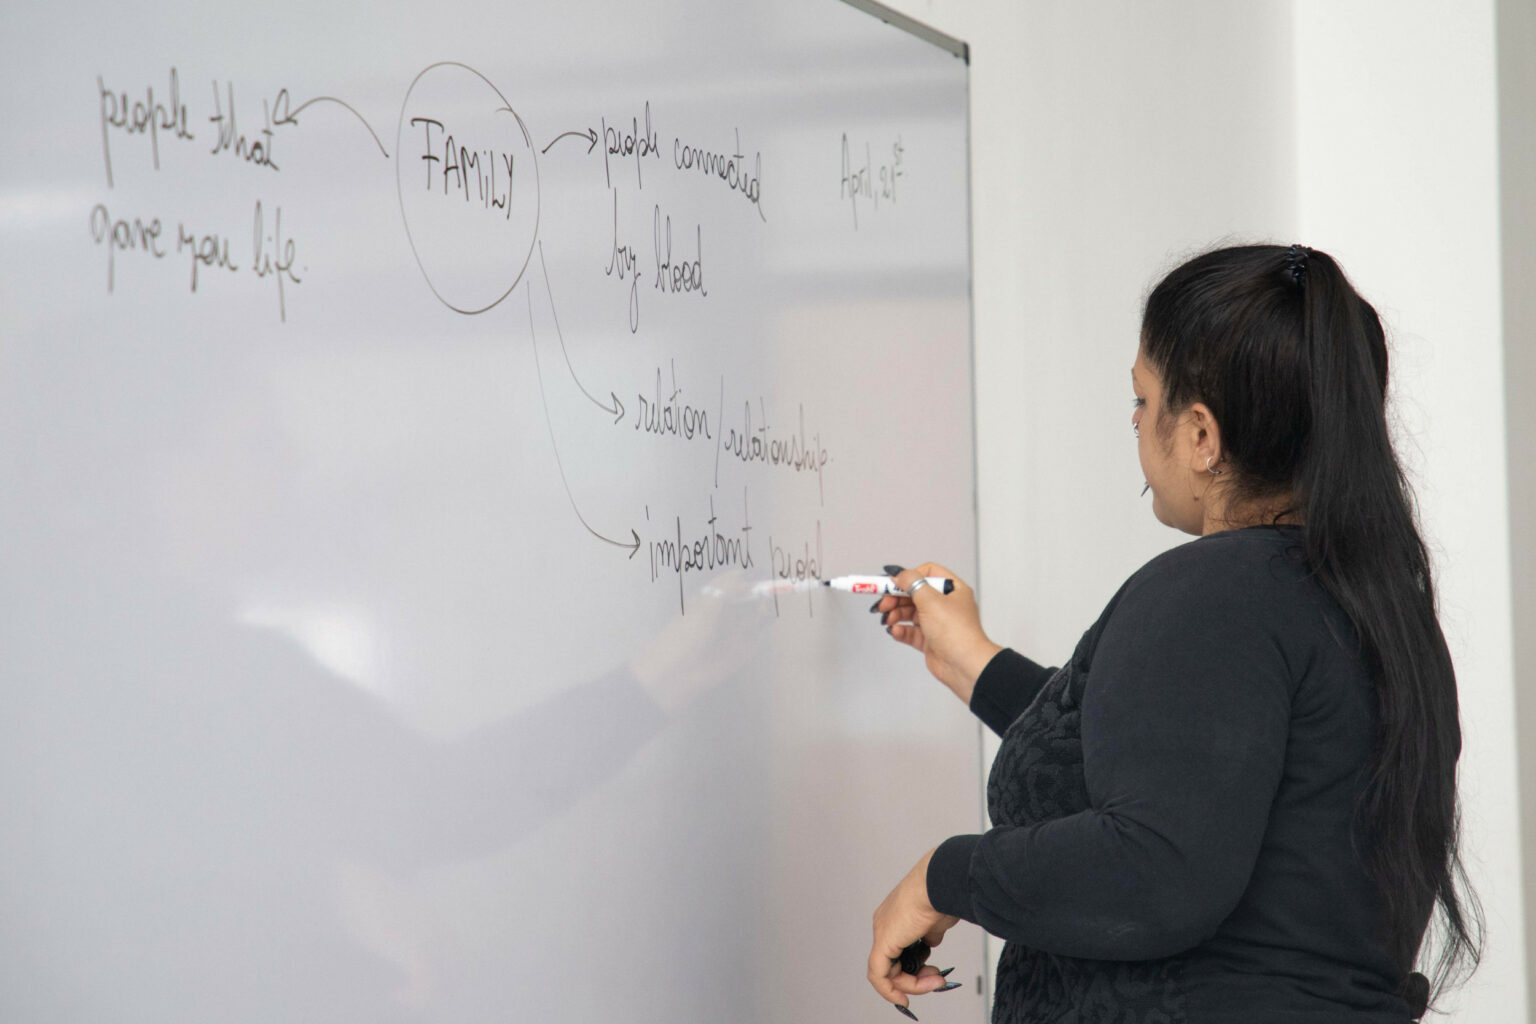 people that
gave you life.
FAMiLY
people connected
by blood
April, 21st
relation/relationship.
important peopl